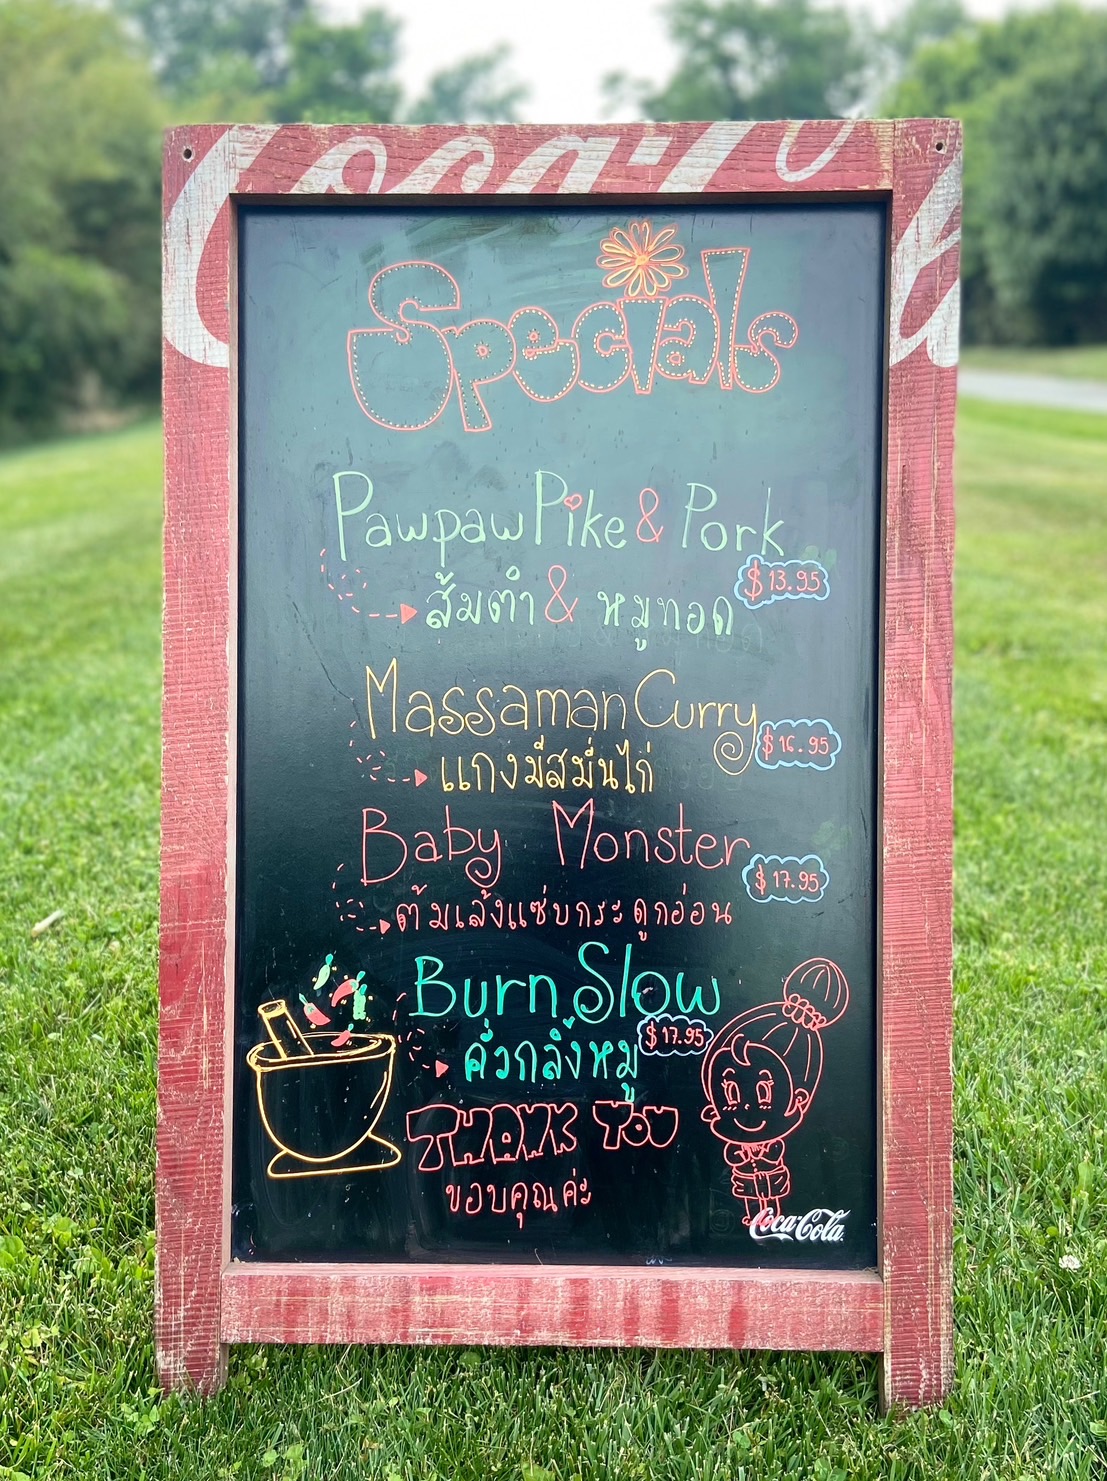 Coca-Co
Specials
Pawpaw Pike & Pork
$13.95
ส้มตำ & หมูทอด
Massaman Curry
$16.95
แกงมัสมั่นไก่
Baby Monster
$17.95
ต้มเล้งแซ่บกระดูกอ่อน
Burn Slow
$17.95
คั่วกลิ้งหมู
THANK YOU
ขอบคุณค่ะ
Coca-Cola